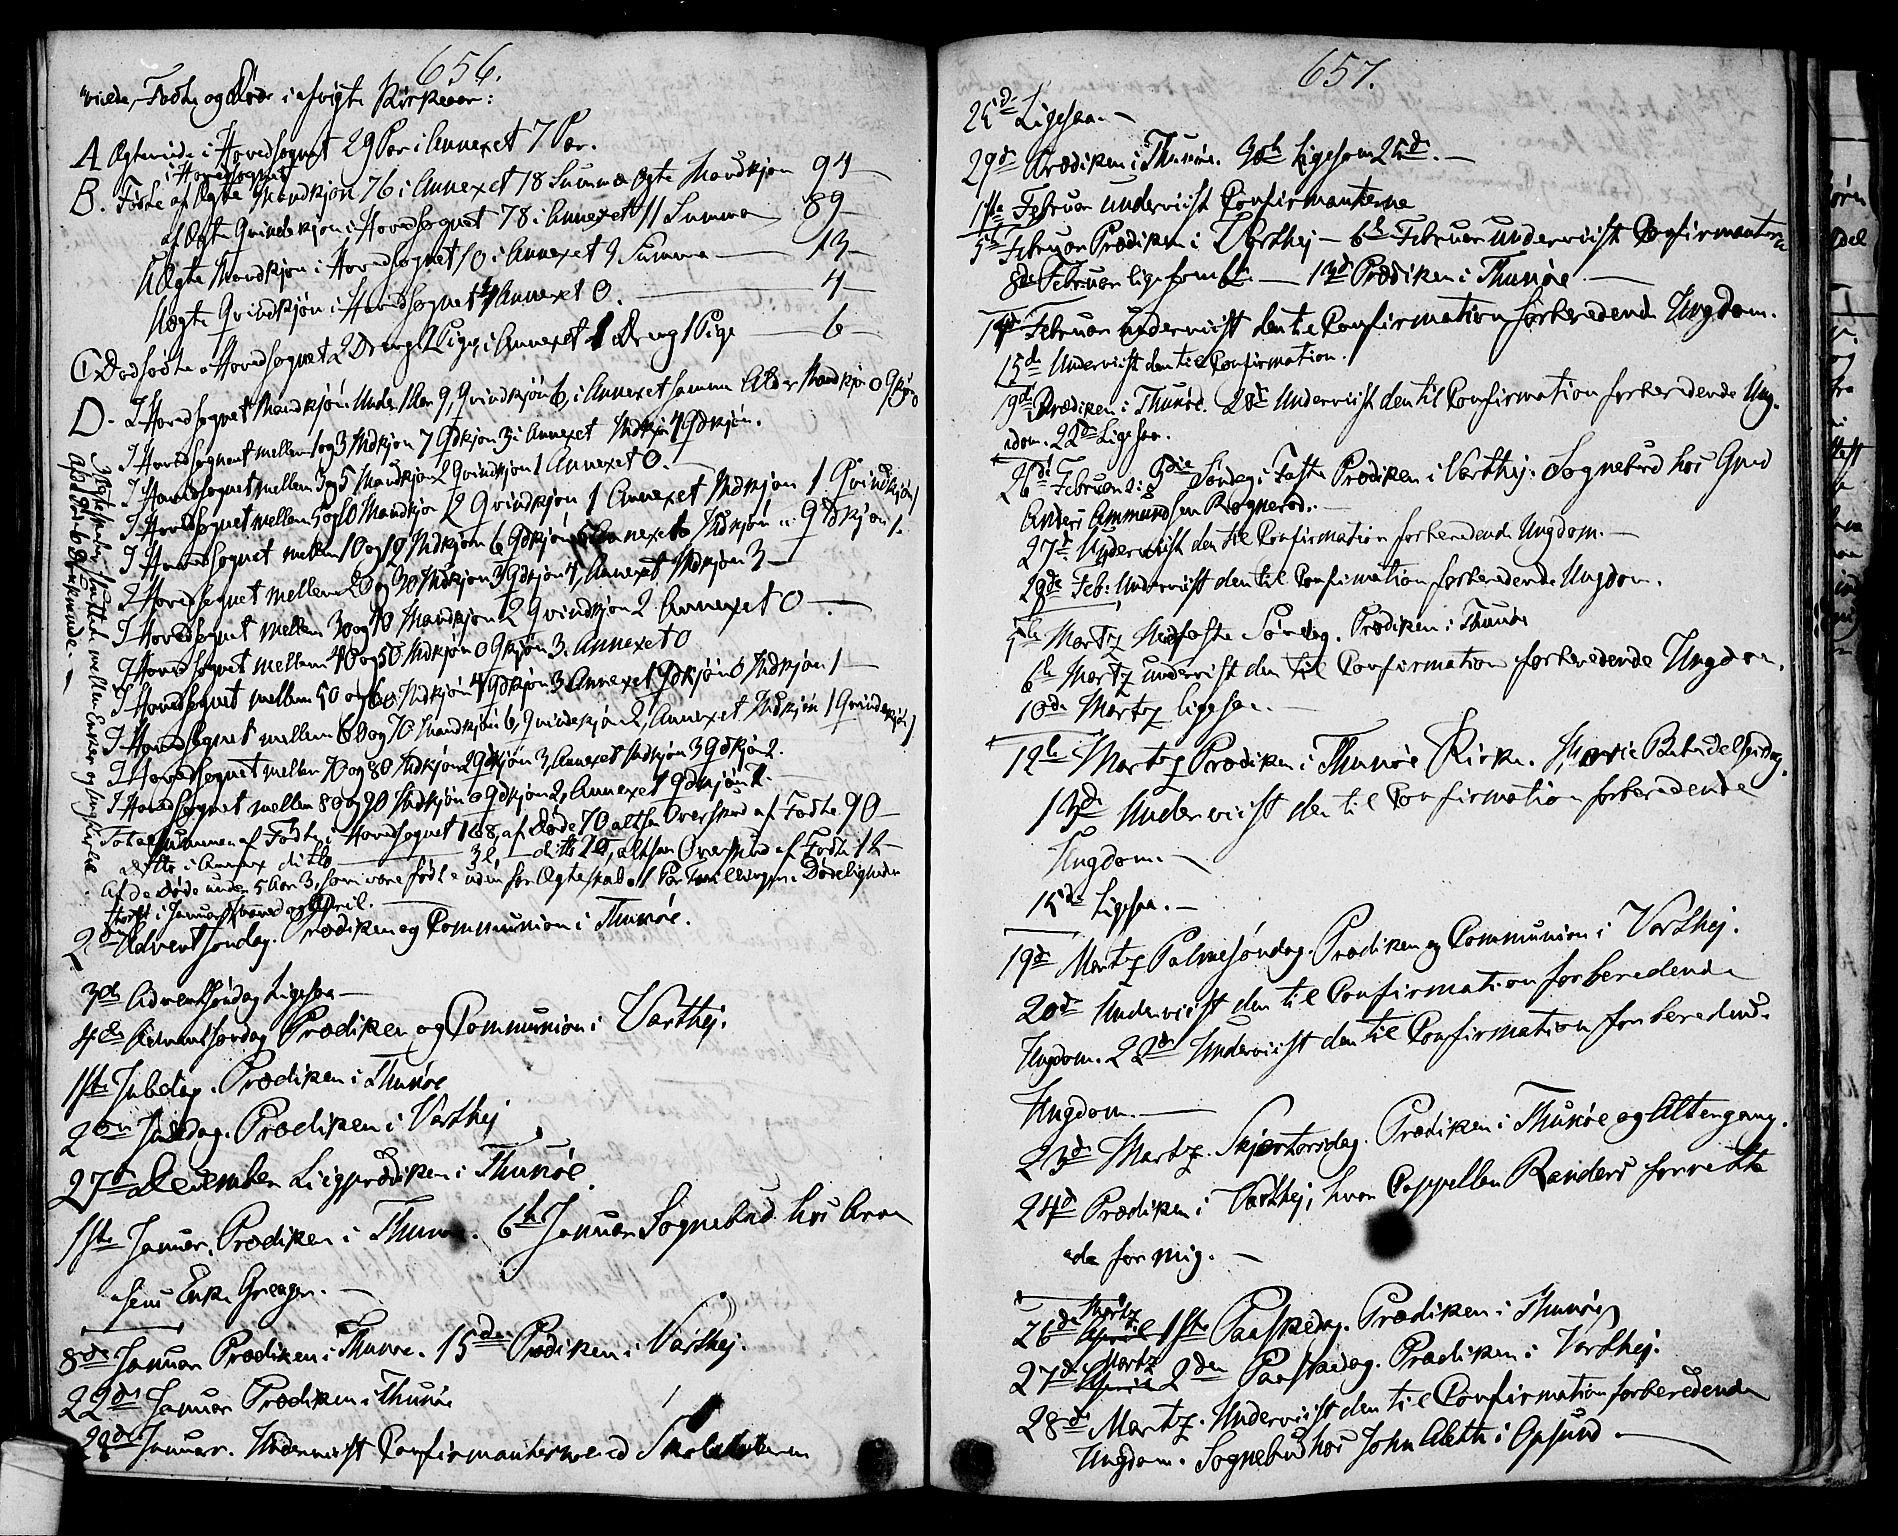 656.
viede, Fødte og Døde i afvigte Kirkeaar:
A Ægteviede i Hovedsognet 29 Par i Annexet 7 Par.
i Hovedsognet
B. Fødte af Ægte Mandkjøn 76 i Annexet 18 Summa Ægte Mandkjøn 94
af Ægte Qvindekjøn i Hovedsognet 78 i Annexet 11 Summa 89
Uægte Mandkjøn i Hovedsognet 10 i Annexet 3 Summa 13
Uægte Qvindkjøn i Hovedsognet 4 Annexet 0. 4
C. Dødfødte i Hovedsognet 2 Dreng 2 Pige, i Annexet 1 Dreng 1 Pige 6
D. I Hovedsognet Mandkjøn Under 1 Aar 9, Qvindkjøn 6, i Annexet samme Alder Mandkjøn 0
I Hovedsognet mellem 1 og 3 Mdkjøn 7 Qdkjøn 3 i Annexet Mdkjøn 1 Qdkjøn.
I Hovedsognet mellem 3 og 5 Mandkjøn 2 Qvindkjøn 1 Annexet 0.
I Hovedsognet mellem 5 og 10 Mandkjøn 2 Qvindkjøn 1 Annexet Mdkjøn 1 Qvindkjøn 1
I Hovedsognet mellem 10 og Mdkjøn 6 Qdkjøn Annexet Mdkjøn " Qdkjøn 1.
I Hovedsognet mellem 20 og 30 Mdkjøn 3 Qdkjøn 4, Annexet Mdkjøn 3
I Hovedsognet mellem 30 og 40 Mandkjøn 2 Qvindkjøn 2 Annexet 0
I Hovedsognet mellem 40 og 50 Mdkjøn 0 Qkjøn 3. Annexet 0
I Hovedsognet mellem 50 og 60 Mdkjøn 4 Qdkjøn 3 Annexet Qdkjøn 0 Mdkjøn 1
I Hovedsognet mellem 60 og 70 Mandkjøn 6, Qvindekjøn 2, Annexet Mdkjøn 1 Qvindekjøn 1
I Hovedsognet mellem 70 og 80 Mdkjøn 2 Qdkjøn 3, Annexet Mdkjøn 3 Qdkjøn 2.
I Hovedsognet mellem 80 og 90 Mdkjøn 0 Qdkjøn 2, Annexet Qdkjøn
Totalsummen af Fødte i Hovedsognet 168, af Døde 70 altsaa Overskud af Fødte 90
ditto i Annex ditto ditto altsaa Overskud af Fødte 12
Af de Døde under 5 Aar 3, som vare fødte uden for Ægteskab. 1 Par Tvillinger. Dødeligheden
størst i Januar og April.
Ægteskaber sluttede mellem Enker og Ungkarle
2den Advent Søndag. Prædiken og Communion i Thunøe.
3die Advent Søndag Ligesaa
4de Advent Søndag Prædiken og Communion i Varthej.
1ste Juledag. Prædiken i Thunøe
2den Juledag. Prædiken i Varthej
27de December Liigprædiken i Thunøe.
1ste Januar, Prædiken i Thunøe. 6te Januar Sognebud hos Aren
Enke Greager.
8de Januar Prædiken i Thunøe. 15de Prædiken i Varthej.
22de Januar Prædiken i Thunøe
Januar. Underviist Confirmanterne ved
657.
25de Ligesaa.
29de Prædiken i Thunøe. 30te Ligesom 25de.
1ste Februar Underviist Confirmanterne
5te Februar Prædiken i Varthej 6te Februar underviist Confirmanterne
8de Februar ligesom 6te. 13de Prædiken i Thunøe
14de Februar underviist den til Confirmation forberedende Ungdom.
15de Underviist den til Confirmation.
19de Prædiken i Thunøe. Underviist den til Confirmation forberedende Ung-
dom. 22de Ligesaa.
26de Februar 3die Søndag i Faste Prædiken i Varthej. Sognebud hos Gmd
Anders Ammundsen Rognerød.
27de Underviist den til Confirmation forberedende Ungdom.
28de Feb: Underviist den til Confirmation forberedende Ungdom.
5te Martz Midfaste Søndag. Prædiken i Thunøe
6te Martz underviist den til Confirmation forberedende Ungdom.
10de Martz ligesaa.
12te Martz Prædiken i Thunøe Kirke. Marie Bebudelsesdag.
13de Underviist den til Confirmation forberedende
Ungdom.
15de Ligesaa.
19de Martz Palmesøndag. Prædiken og Communion i Varthej.
20de Underviist den til Confirmation forberedende
Ungdom. 22de Underviist den til Confirmation forberedende
Ungdom.
23de Martz. Skjærtorsdag. Prædiken i Thunøe og Altergang.
24de Prædiken i Varthej, hvor Cappellan Randers forrette
ede for mig.
Martz
26de April 1ste Paaskedag. Prædiken i Thunøe
Martz
27de April 2den Paaskedag. Prædiken i Varthej.
28de Martz. Underviist den til Confirmation forberedende
Ungdom. Sognebud hos John Aleth i Opsund.